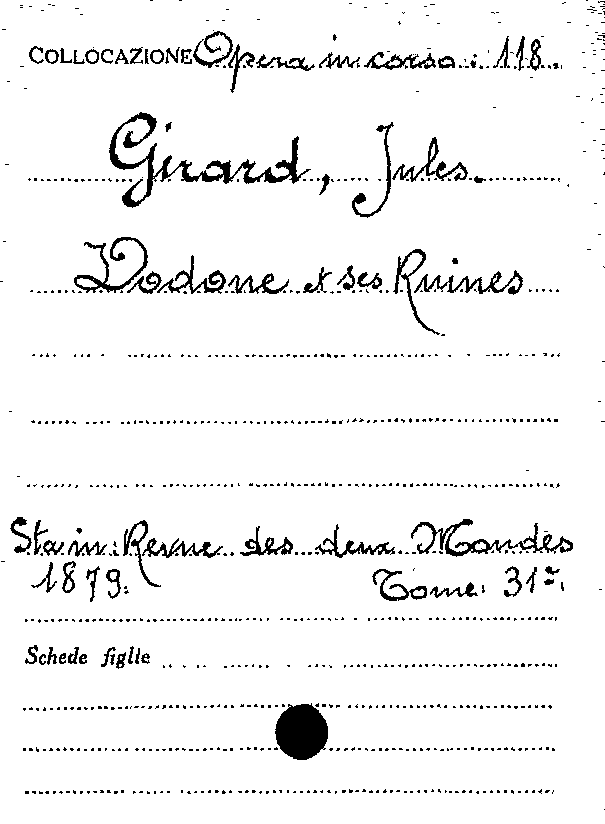 COLLOCAZIONE Opera in corso: 118.
Girard, Jules.
Dodone et ses Ruines
Sta in: Revue des deux Mondes
1879. Tome. 31e.
Schede figlie